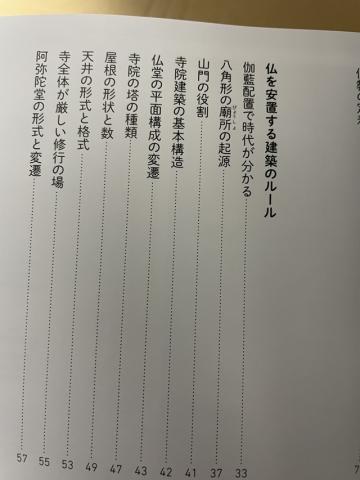 仏を安置する建築のルール
伽藍配置で時代が分かる 33
八角形の廟所の起源 37
山門の役割 41
寺院建築の基本構造 42
仏堂の平面構成の変遷 43
寺院の塔の種類 47
屋根の形状と数 49
天井の形式と格式 53
寺全体が厳しい修行の場 55
阿弥陀堂の形式と変遷 57